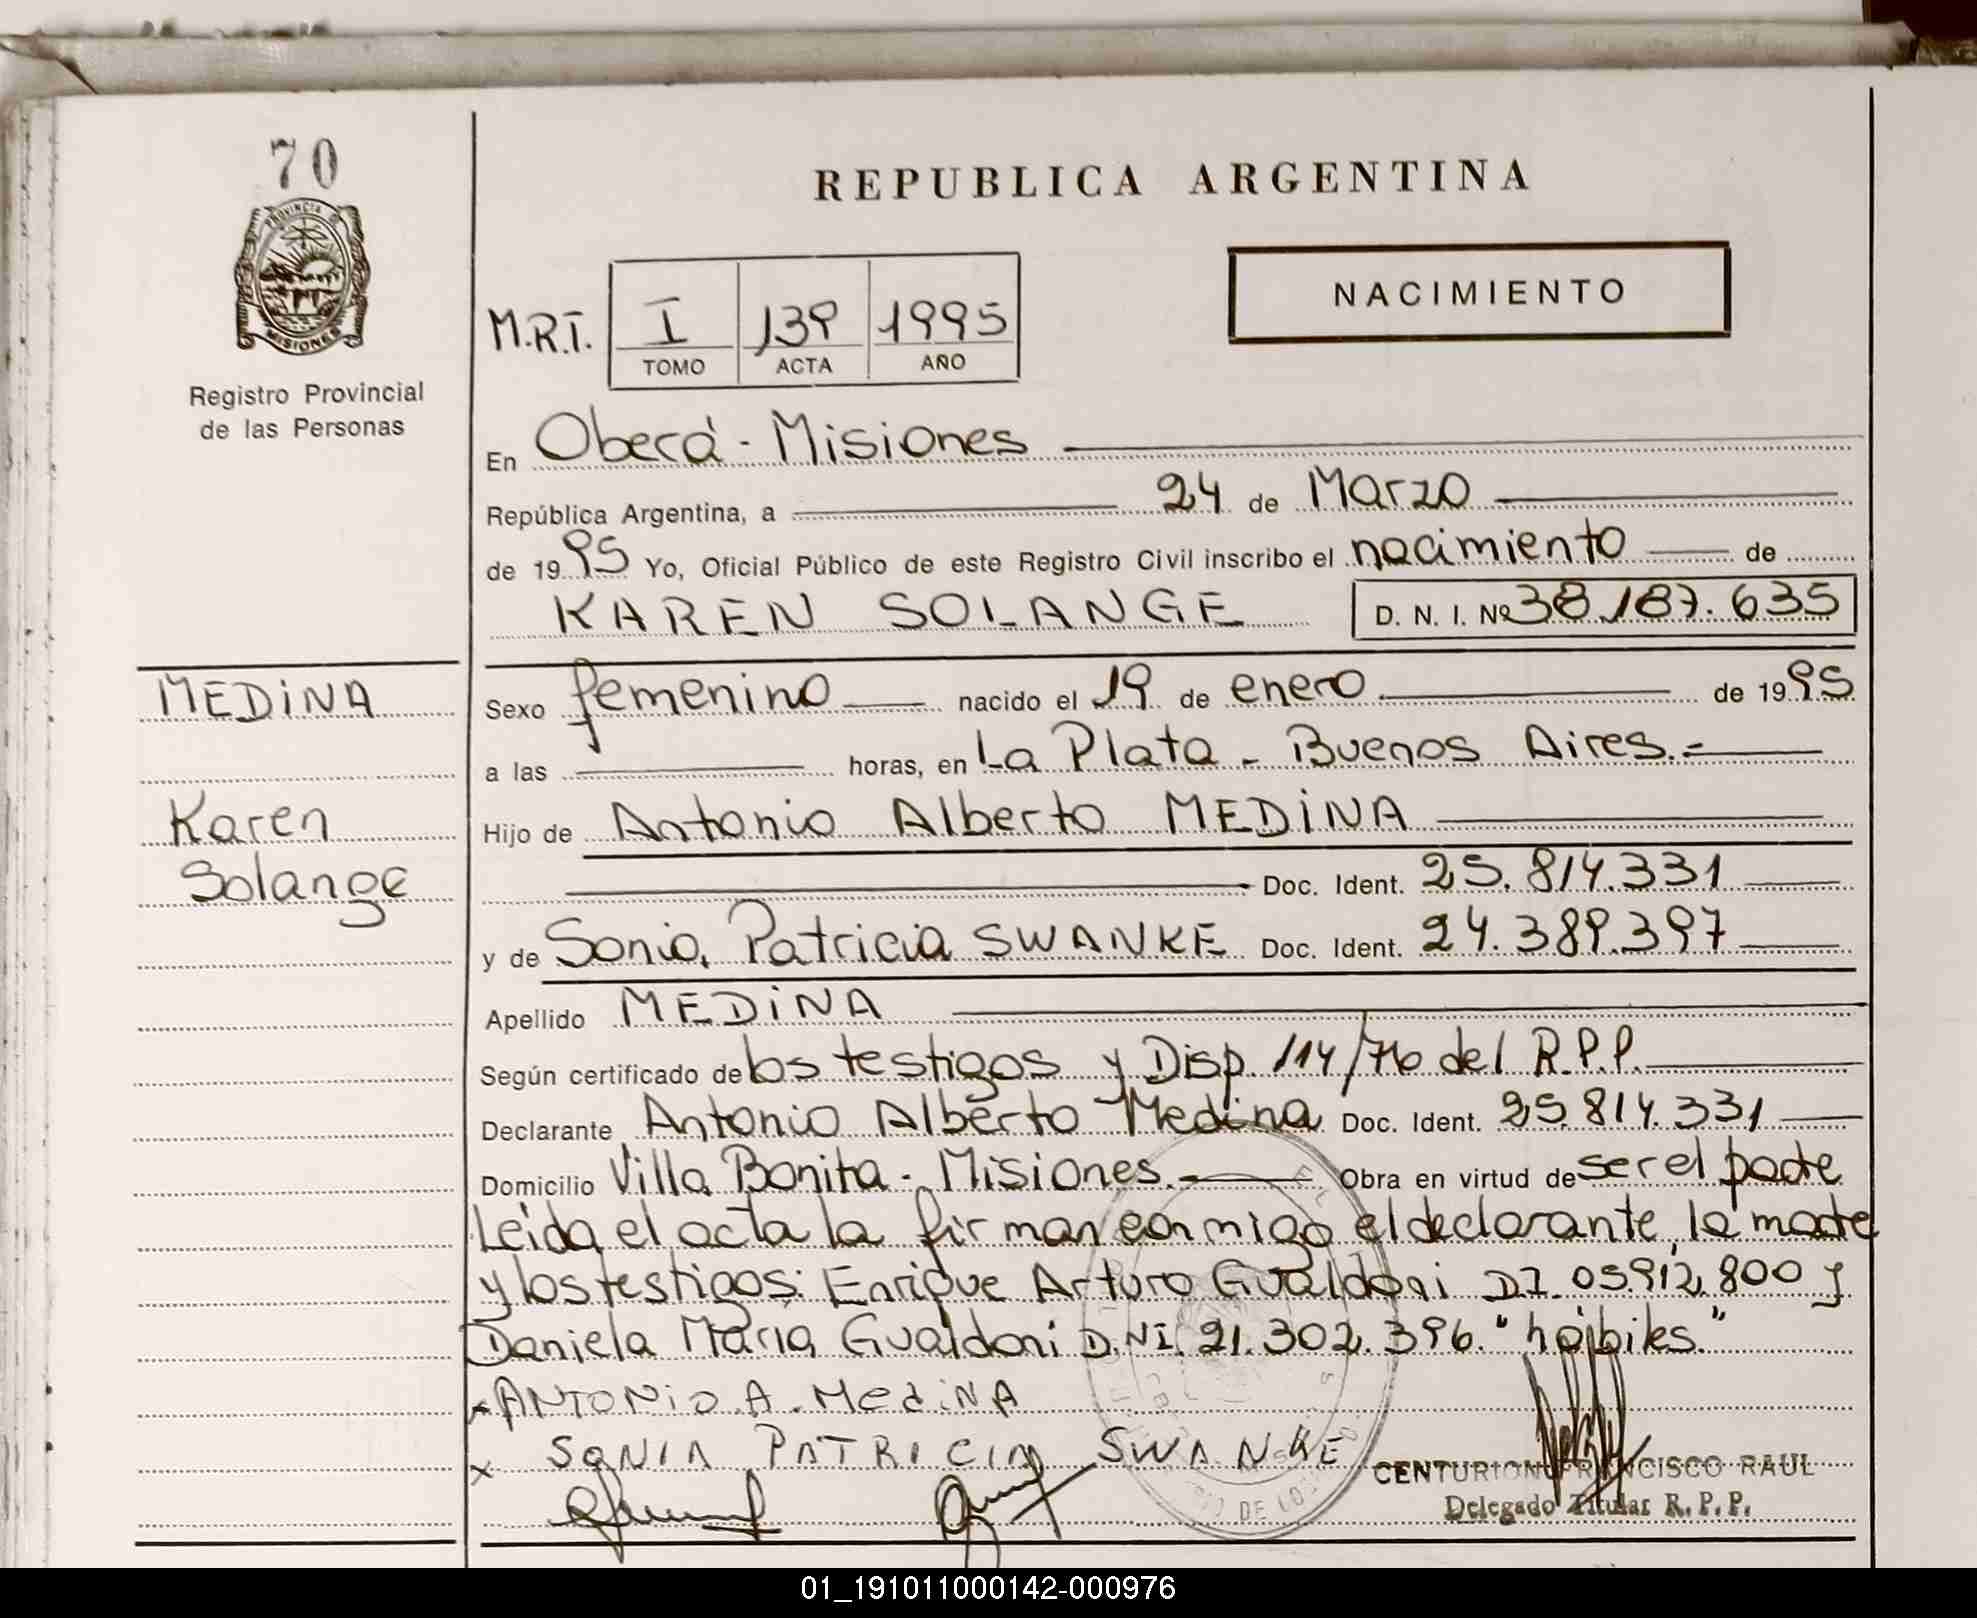 70
PROVINCIA DE
MISIONES
Registro Provincial
de las Personas
REPUBLICA ARGENTINA
NACIMIENTO
M.R.T. I 139 1995
TOMO ACTA AÑO
En Oberá - Misiones
República Argentina, a 24 de Marzo
de 1995 Yo, Oficial Público de este Registro Civil inscribo el nacimiento de
KAREN SOLANGE D. N. I. Nº 38.187.635
MEDINA
Karen
Solange
Sexo femenino nacido el 19 de enero de 1995
a las horas, en La Plata - Buenos Aires.=
Hijo de Antonio Alberto MEDINA
Doc. Ident. 25.814.331
y de Sonia Patricia SWANKE Doc. Ident. 24.389.397
Apellido MEDINA
Según certificado de los testigos y Disp. 114/76 del R.P.P.
Declarante Antonio Alberto Medina Doc. Ident. 25.814.331
Domicilio Villa Bonita - Misiones. Obra en virtud de ser el padre
Leida el acta la firman conmigo el declarante, la madre
y los testigos: Enrique Arturo Gualdoni DI. 05.912.800 y
Daniela Maria Gualdoni D.NI. 21.302.396. "hábiles."
x ANTONIO A. MEdiNA
x SONIA PATRICIA SWANKE
CENTURION FRANCISCO RAUL
Delegado Titular R. P. P.
01_191011000142-000976